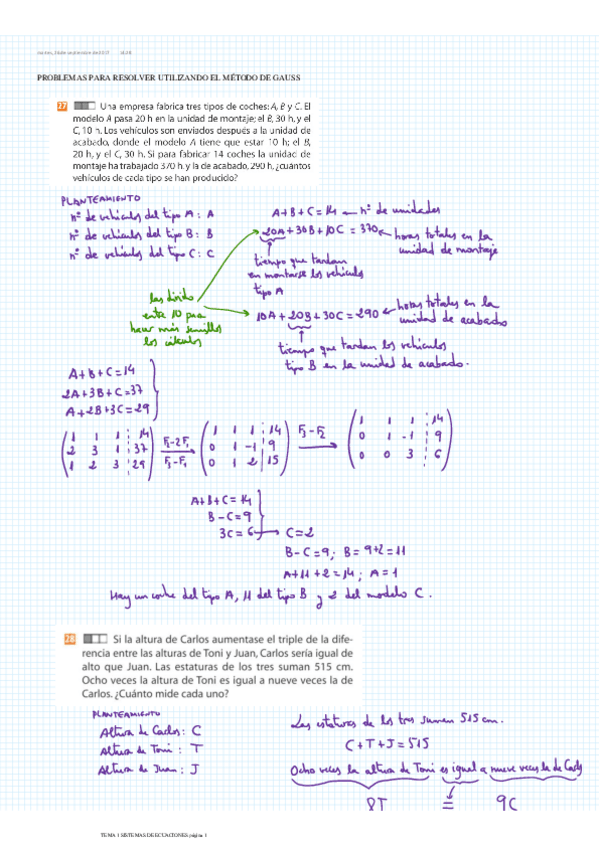 PROBLEMAS PARA RESOLVER UTILIZANDO EL MÉTODO DE GAUSS
27 Una empresa fabrica tres tipos de coches: A, B y C. El
modelo A pasa 20 h en la unidad de montaje; el B, 30 h, y el
C, 10 h. Los vehículos son enviados después a la unidad de
acabado, donde el modelo A tiene que estar 10 h; el B,
20 h, y el C, 30 h. Si para fabricar 14 coches la unidad de
montaje ha trabajado 370 h, y la de acabado, 290 h, ¿cuántos
vehículos de cada tipo se han producido?
PLANTEAMIENTO
nº de vehículos del tipo A : A
nº de vehículos del tipo B : B
nº de vehículos del tipo C : C
A+B+C=14 nº de unidades
20A+30B+10C=370 horas totales en la
unidad de montaje
tiempo que tardan
en montarse los vehículos
tipo A
las divido
entre 10 para
hacer más sencillos
los cálculos
10A+20B+30C=290 horas totales en la
unidad de acabado
tiempo que tardan los vehículos
tipo B en la unidad de acabado.
A+B+C=14
2A+3B+C=37
A+2B+3C=29
1 1 1 14 1 1 1 14 1 1 1 14
2 3 1 37 F2-2F1 0 1 -1 9 F3-F2 0 1 -1 9
1 2 3 29 F3-F1 0 1 2 15 0 0 3 6
A+B+C=14
B-C=9
3C=6 → C=2
B-C=9; B=9+2=11
A+11+2=14; A=1
Hay un coche del tipo A, 11 del tipo B y 2 del modelo C.
28 Si la altura de Carlos aumentase el triple de la dife-
rencia entre las alturas de Toni y Juan, Carlos sería igual de
alto que Juan. Las estaturas de los tres suman 515 cm.
Ocho veces la altura de Toni es igual a nueve veces la de
Carlos. ¿Cuánto mide cada uno?
PLANTEAMIENTO
Altura de Carlos: C
Altura de Toni : T
Altura de Juan: J
Las estaturas de los tres suman 515 cm.
C+T+J=515
Ocho veces la altura de Toni es igual a nueve veces la de Carlos
8T = 9C
TEMA 1 SISTEMAS DE ECUACIONES página 1